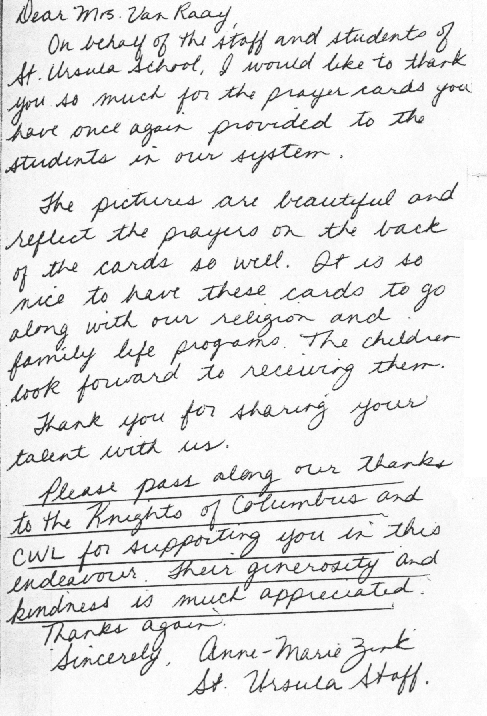 Dear Mrs. Van Raay,
On behalf of the staff and students of
St. Ursula School, I would like to thank
you so much for the prayer cards you
have once again provided to the
students in our system.
The pictures are beautiful and
reflect the prayers on the back
of the cards so well. It is so
nice to have these cards to go
along with our religion and
family life programs. The children
look forward to receiving them.
Thank you for sharing your
talent with us.
Please pass along our thanks
to the Knights of Columbus and
CWL for supporting you in this
endeavour. Their generosity and
kindness is much appreciated.
Thanks again.
Sincerely, Anne-Marie Zink
St. Ursula Staff.